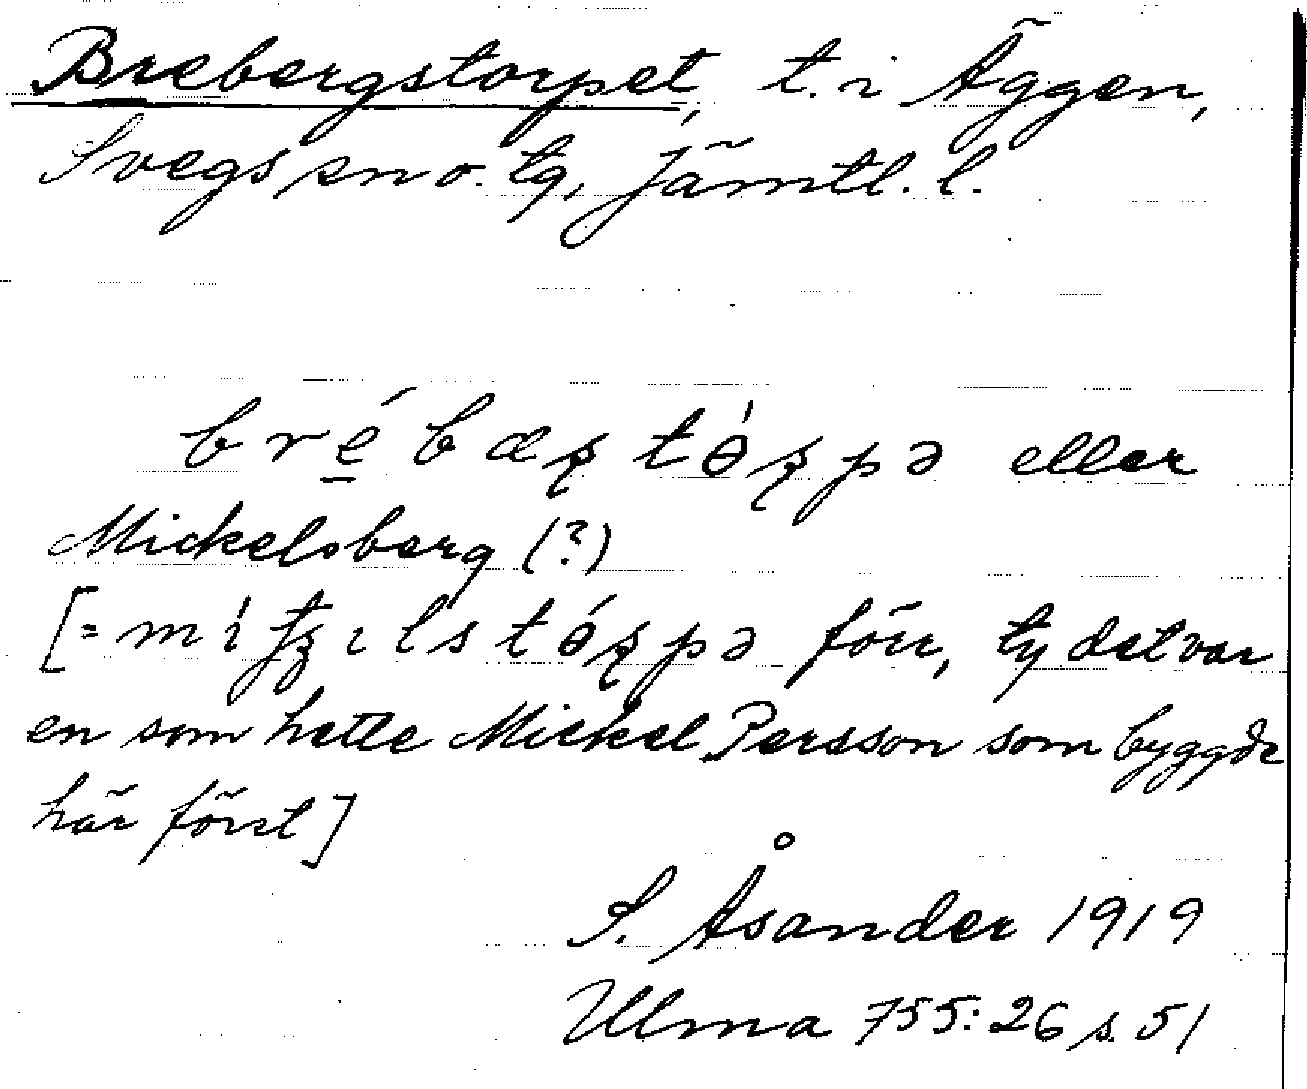 Brebergstorpet, t. i Äggen,
Svegs sn o. tg, Jämtl. l.
eller
Mickelsberg (?)
[= förr, ty det var
en som hette Mickel Persson som byggde
här först]
S. Åsander 1919
Ulma 755:26 s. 51